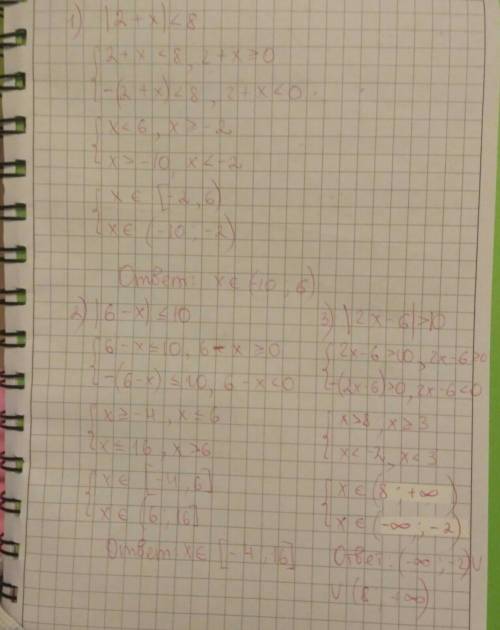 1) |2+x|<8
{2+x<8, 2+x≥0
{-(2+x)<8, 2+x<0
{x<6, x≥-2
{x>-10, x<-2
{x∈[-2, 6)
{x∈(-10, -2)
Ответ: x∈(-10, 6)
2) |6-x|≤10
{6-x≤10, 6-x≥0
{-(6-x)≤10, 6-x<0
{x≥-4, x≤6
{x≤16, x>6
{x∈[-4, 6]
{x∈(6, 16]
Ответ: x∈[-4, 16]
3) |2x-6|>10
{2x-6>10, 2x-6≥0
{-(2x-6)>0, 2x-6<0
{x>8, x≥3
{x<-2, x<3
{x∈(8; +∞)
{x∈(-∞; -2)
Ответ: (-∞; -2)∪
∪(8, +∞)